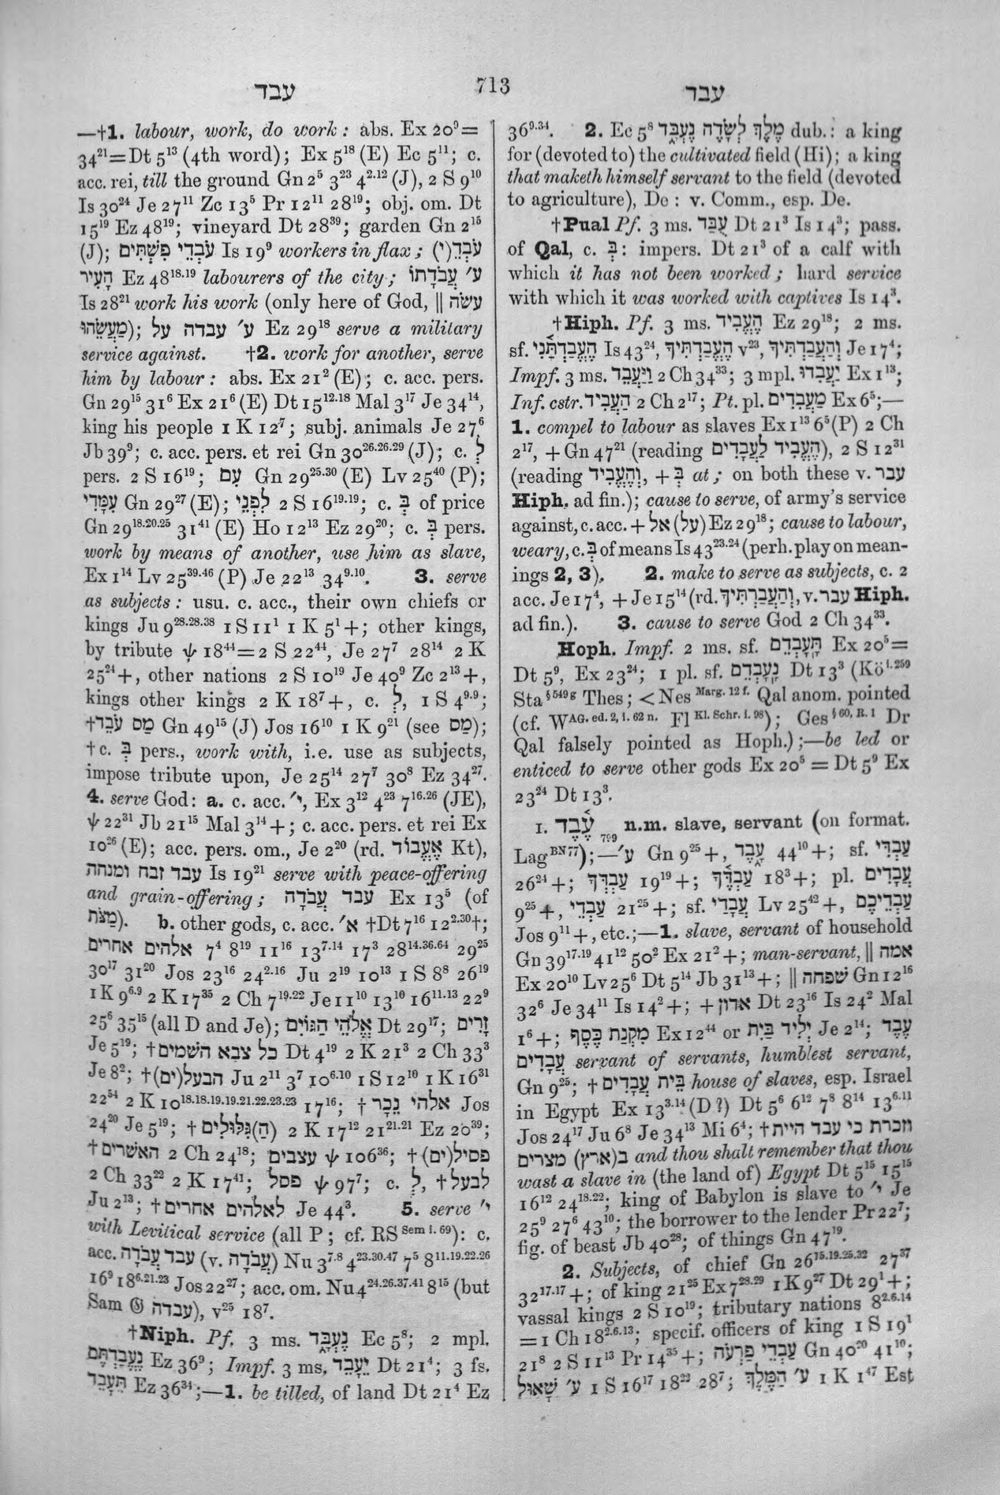 עבד
713
עבד
—†1. labour, work, do work: abs. Ex 20⁹=
34²¹=Dt 5¹³ (4th word); Ex 5¹⁸ (E) Ec 5¹¹; c.
acc. rei, till the ground Gn 2⁵ 3²³ 4².¹² (J), 2 S 9¹⁰
Is 30²⁴ Je 27¹¹ Zc 13⁵ Pr 12¹¹ 28¹⁹; obj. om. Dt
15¹⁹ Ez 48¹⁹; vineyard Dt 28³⁹; garden Gn 2¹⁵
(J); עֹבְדֵי פִשְׁתִּים Is 19⁹ workers in flax; עֹבְדֵ(י)
הָעִיר Ez 48¹⁸·¹⁹ labourers of the city; ע׳ עֲבֹדָתוֹ
Is 28²¹ work his work (only here of God, ‖ עשׂה
מַעֲשֵׂהוּ); ע׳ עבדה על Ez 29¹⁸ serve a military
service against. †2. work for another, serve
him by labour: abs. Ex 21² (E); c. acc. pers.
Gn 29¹⁵ 31⁶ Ex 21⁶ (E) Dt 15¹²·¹⁸ Mal 3¹⁷ Je 34¹⁴,
king his people 1 K 12⁷; subj. animals Je 27⁶
Jb 39⁹; c. acc. pers. et rei Gn 30²⁶·²⁶·²⁹ (J); c. לְ
pers. 2 S 16¹⁹; עִם Gn 29²⁵·³⁰ (E) Lv 25⁴⁰ (P);
עִמָּדִי Gn 29²⁷ (E); לִפְנֵי 2 S 16¹⁹·¹⁹; c. בְּ of price
Gn 29¹⁸·²⁰·²⁵ 31⁴¹ (E) Ho 12¹³ Ez 29²⁰; c. בְּ pers.
work by means of another, use him as slave,
Ex 1¹⁴ Lv 25³⁹·⁴⁶ (P) Je 22¹³ 34⁹·¹⁰. 3. serve
as subjects: usu. c. acc., their own chiefs or
kings Ju 9²⁸·²⁸·³⁸ 1 S 11¹ 1 K 5¹+; other kings,
by tribute ψ 18⁴⁴=2 S 22⁴⁴, Je 27⁷ 28¹⁴ 2 K
25²⁴+, other nations 2 S 10¹⁹ Je 40⁹ Zc 2¹³+,
kings other kings 2 K 18⁷+, c. לְ, 1 S 4⁹·⁹;
†מַס עֹבֵד Gn 49¹⁵ (J) Jos 16¹⁰ 1 K 9²¹ (see מַס);
†c. בְּ pers., work with, i.e. use as subjects,
impose tribute upon, Je 25¹⁴ 27⁷ 30⁸ Ez 34²⁷.
4. serve God: a. c. acc. י׳, Ex 3¹² 4²³ 7¹⁶·²⁶ (JE),
ψ 22³¹ Jb 21¹⁵ Mal 3¹⁴+; c. acc. pers. et rei Ex
10²⁶ (E); acc. pers. om., Je 2²⁰ (rd. אֶעֱבוֹד Kt),
עבד זבח ומנחה Is 19²¹ serve with peace-offering
and grain-offering; עבד עֲבֹדָה Ex 13⁵ (of
מַצֹּת). b. other gods, c. acc. א׳ †Dt 7¹⁶ 12²·³⁰†;
אלהים אחרים 7⁴ 8¹⁹ 11¹⁶ 13⁷·¹⁴ 17³ 28¹⁴·³⁶·⁶⁴ 29²⁵
30¹⁷ 31²⁰ Jos 23¹⁶ 24²·¹⁶ Ju 2¹⁹ 10¹³ 1 S 8⁸ 26¹⁹
1 K 9⁶·⁹ 2 K 17³⁵ 2 Ch 7¹⁹·²² Je 11¹⁰ 13¹⁰ 16¹¹·¹³ 22⁹
25⁶ 35¹⁵ (all D and Je); אֱלֹהֵי הַגּוֹיִם Dt 29¹⁷; זָרִים
Je 5¹⁹; †כל צבא השמים Dt 4¹⁹ 2 K 21³ 2 Ch 33³
Je 8²; †הבעל(ים) Ju 2¹¹ 3⁷ 10⁶·¹⁰ 1 S 12¹⁰ 1 K 16³¹
22⁵⁴ 2 K 10¹⁸·¹⁸·¹⁹·¹⁹·²¹·²²·²³·²³ 17¹⁶; †אלהי נֵכָר Jos
24²⁰ Je 5¹⁹; †(הַ)גִּלּוּלִים 2 K 17¹² 21²¹·²¹ Ez 20³⁹;
†האשרים 2 Ch 24¹⁸; עצבים ψ 106³⁶; †פסיל(ים)
2 Ch 33²² 2 K 17⁴¹; פסל ψ 97⁷; c. לְ, †לבעל
Ju 2¹³; †לאלהים אחרים Je 44³. 5. serve י׳
with Levitical service (all P; cf. RS Sem i. 69): c.
acc. עבד עֲבֹדָה (v. עֲבֹדָה) Nu 3⁷·⁸ 4²³·³⁰·⁴⁷ 7⁵ 8¹¹·¹⁹·²²·²⁶
16⁹ 18⁶·²¹·²³ Jos 22²⁷; acc. om. Nu 4²⁴·²⁶·³⁷·⁴¹ 8¹⁵ (but
Sam 𝔊 עבדה), v²⁵ 18⁷.
†Niph. Pf. 3 ms. נֶעֱבָד Ec 5⁸; 2 mpl.
נֶעֱבַדְתֶּם Ez 36⁹; Impf. 3 ms. יֵעָבֵד Dt 21⁴; 3 fs.
תֵּעָבֵד Ez 36³⁴;—1. be tilled, of land Dt 21⁴ Ez
36⁹·³⁴. 2. Ec 5⁸ מֶלֶךְ לְשָׂדֶה נֶעֱבָד dub.: a king
for (devoted to) the cultivated field (Hi); a king
that maketh himself servant to the field (devoted
to agriculture), De: v. Comm., esp. De.
†Pual Pf. 3 ms. עֻבַּד Dt 21³ Is 14³; pass.
of Qal, c. בְּ: impers. Dt 21³ of a calf with
which it has not been worked; hard service
with which it was worked with captives Is 14³.
†Hiph. Pf. 3 ms. הֶעֱבִיד Ez 29¹⁸; 2 ms.
sf. הֶעֱבַדְתַּנִי Is 43²⁴, הֶעֱבַדְתִּיךָ v²³, וְהַעֲבַדְתִּיךָ Je 17⁴;
Impf. 3 ms. וַיַּעֲבֵד 2 Ch 34³³; 3 mpl. יַעֲבִדוּ Ex 1¹³;
Inf. cstr. הַעֲבִיד 2 Ch 2¹⁷; Pt. pl. מַעֲבִדִים Ex 6⁵;—
1. compel to labour as slaves Ex 1¹³ 6⁵ (P) 2 Ch
2¹⁷, +Gn 47²¹ (reading הֶעֱבִיד לַעֲבָדִים), 2 S 12³¹
(reading וְהֶעֱבִיד, +בְּ at; on both these v. עבר
Hiph. ad fin.); cause to serve, of army's service
against, c. acc. + אל (על) Ez 29¹⁸; cause to labour,
weary, c. בְּ of means Is 43²³·²⁴ (perh. play on mean-
ings 2, 3). 2. make to serve as subjects, c. 2
acc. Je 17⁴, +Je 15¹⁴ (rd. וְהַעֲבַדְתִּיךָ, v. עבר Hiph.
ad fin.). 3. cause to serve God 2 Ch 34³³.
Hoph. Impf. 2 ms. sf. תָּעָבְדֵם Ex 20⁵=
Dt 5⁹, Ex 23²⁴; 1 pl. sf. נָעָבְדֵם Dt 13³ (Kö i. 259
Sta § 549 g Thes; <Nes Marg. 12 f. Qal anom. pointed
(cf. WAG. ed. 2, i. 62 n. Fl Kl. Schr. i. 98); Ges § 60, R. 1 Dr
Qal falsely pointed as Hoph.);—be led or
enticed to serve other gods Ex 20⁵=Dt 5⁹ Ex
23²⁴ Dt 13³.
I. עֶבֶד 799 n.m. slave, servant (on format.
Lag BN 77);—ע׳ Gn 9²⁵+, עָבֶד 44¹⁰+; sf. עַבְדִּי
26²⁴+; עַבְדְּךָ 19¹⁹+; עַבְדֶּךָ 18³+; pl. עֲבָדִים
9²⁵+, עַבְדֵי 21²⁵+; sf. עֲבָדַי Lv 25⁴²+, עַבְדֵיכֶם
Jos 9¹¹+, etc.;—1. slave, servant of household
Gn 39¹⁷·¹⁹ 41¹² 50² Ex 21²+; man-servant, ‖ אמה
Ex 20¹⁰ Lv 25⁶ Dt 5¹⁴ Jb 31¹³+; ‖ שפחה Gn 12¹⁶
32⁶ Je 34¹¹ Is 14²+; +אדון Dt 23¹⁶ Is 24² Mal
1⁶+; מִקְנַת כֶּסֶף Ex 12⁴⁴ or יְלִיד בַּיִת Je 2¹⁴; עֶבֶד
עֲבָדִים servant of servants, humblest servant,
Gn 9²⁵; †בֵּית עֲבָדִים house of slaves, esp. Israel
in Egypt Ex 13³·¹⁴ (D?) Dt 5⁶ 6¹² 7⁸ 8¹⁴ 13⁶·¹¹
Jos 24¹⁷ Ju 6⁸ Je 34¹³ Mi 6⁴; †וזכרת כי עבד היית
ב(ארץ) מצרים and thou shalt remember that thou
wast a slave in (the land of) Egypt Dt 5¹⁵ 15¹⁵
16¹² 24¹⁸·²²; king of Babylon is slave to י׳ Je
25⁹ 27⁶ 43¹⁰; the borrower to the lender Pr 22⁷;
fig. of beast Jb 40²⁸; of things Gn 47¹⁹.
2. Subjects, of chief Gn 26¹⁵·¹⁹·²⁵·³² 27³⁷
32¹⁷·¹⁷+; of king 21²⁵ Ex 7²⁸·²⁹ 1 K 9²⁷ Dt 29¹+;
vassal kings 2 S 10¹⁹; tributary nations 8²·⁶·¹⁴
=1 Ch 18²·⁶·¹³; specif. officers of king 1 S 19¹
21⁸ 2 S 11¹³ Pr 14³⁵+; עַבְדֵי פַרְעֹה Gn 40²⁰ 41¹⁰;
ע׳ שָׁאוּל 1 S 16¹⁷ 18²² 28⁷; ע׳ הַמֶּלֶךְ 1 K 1⁴⁷ Est